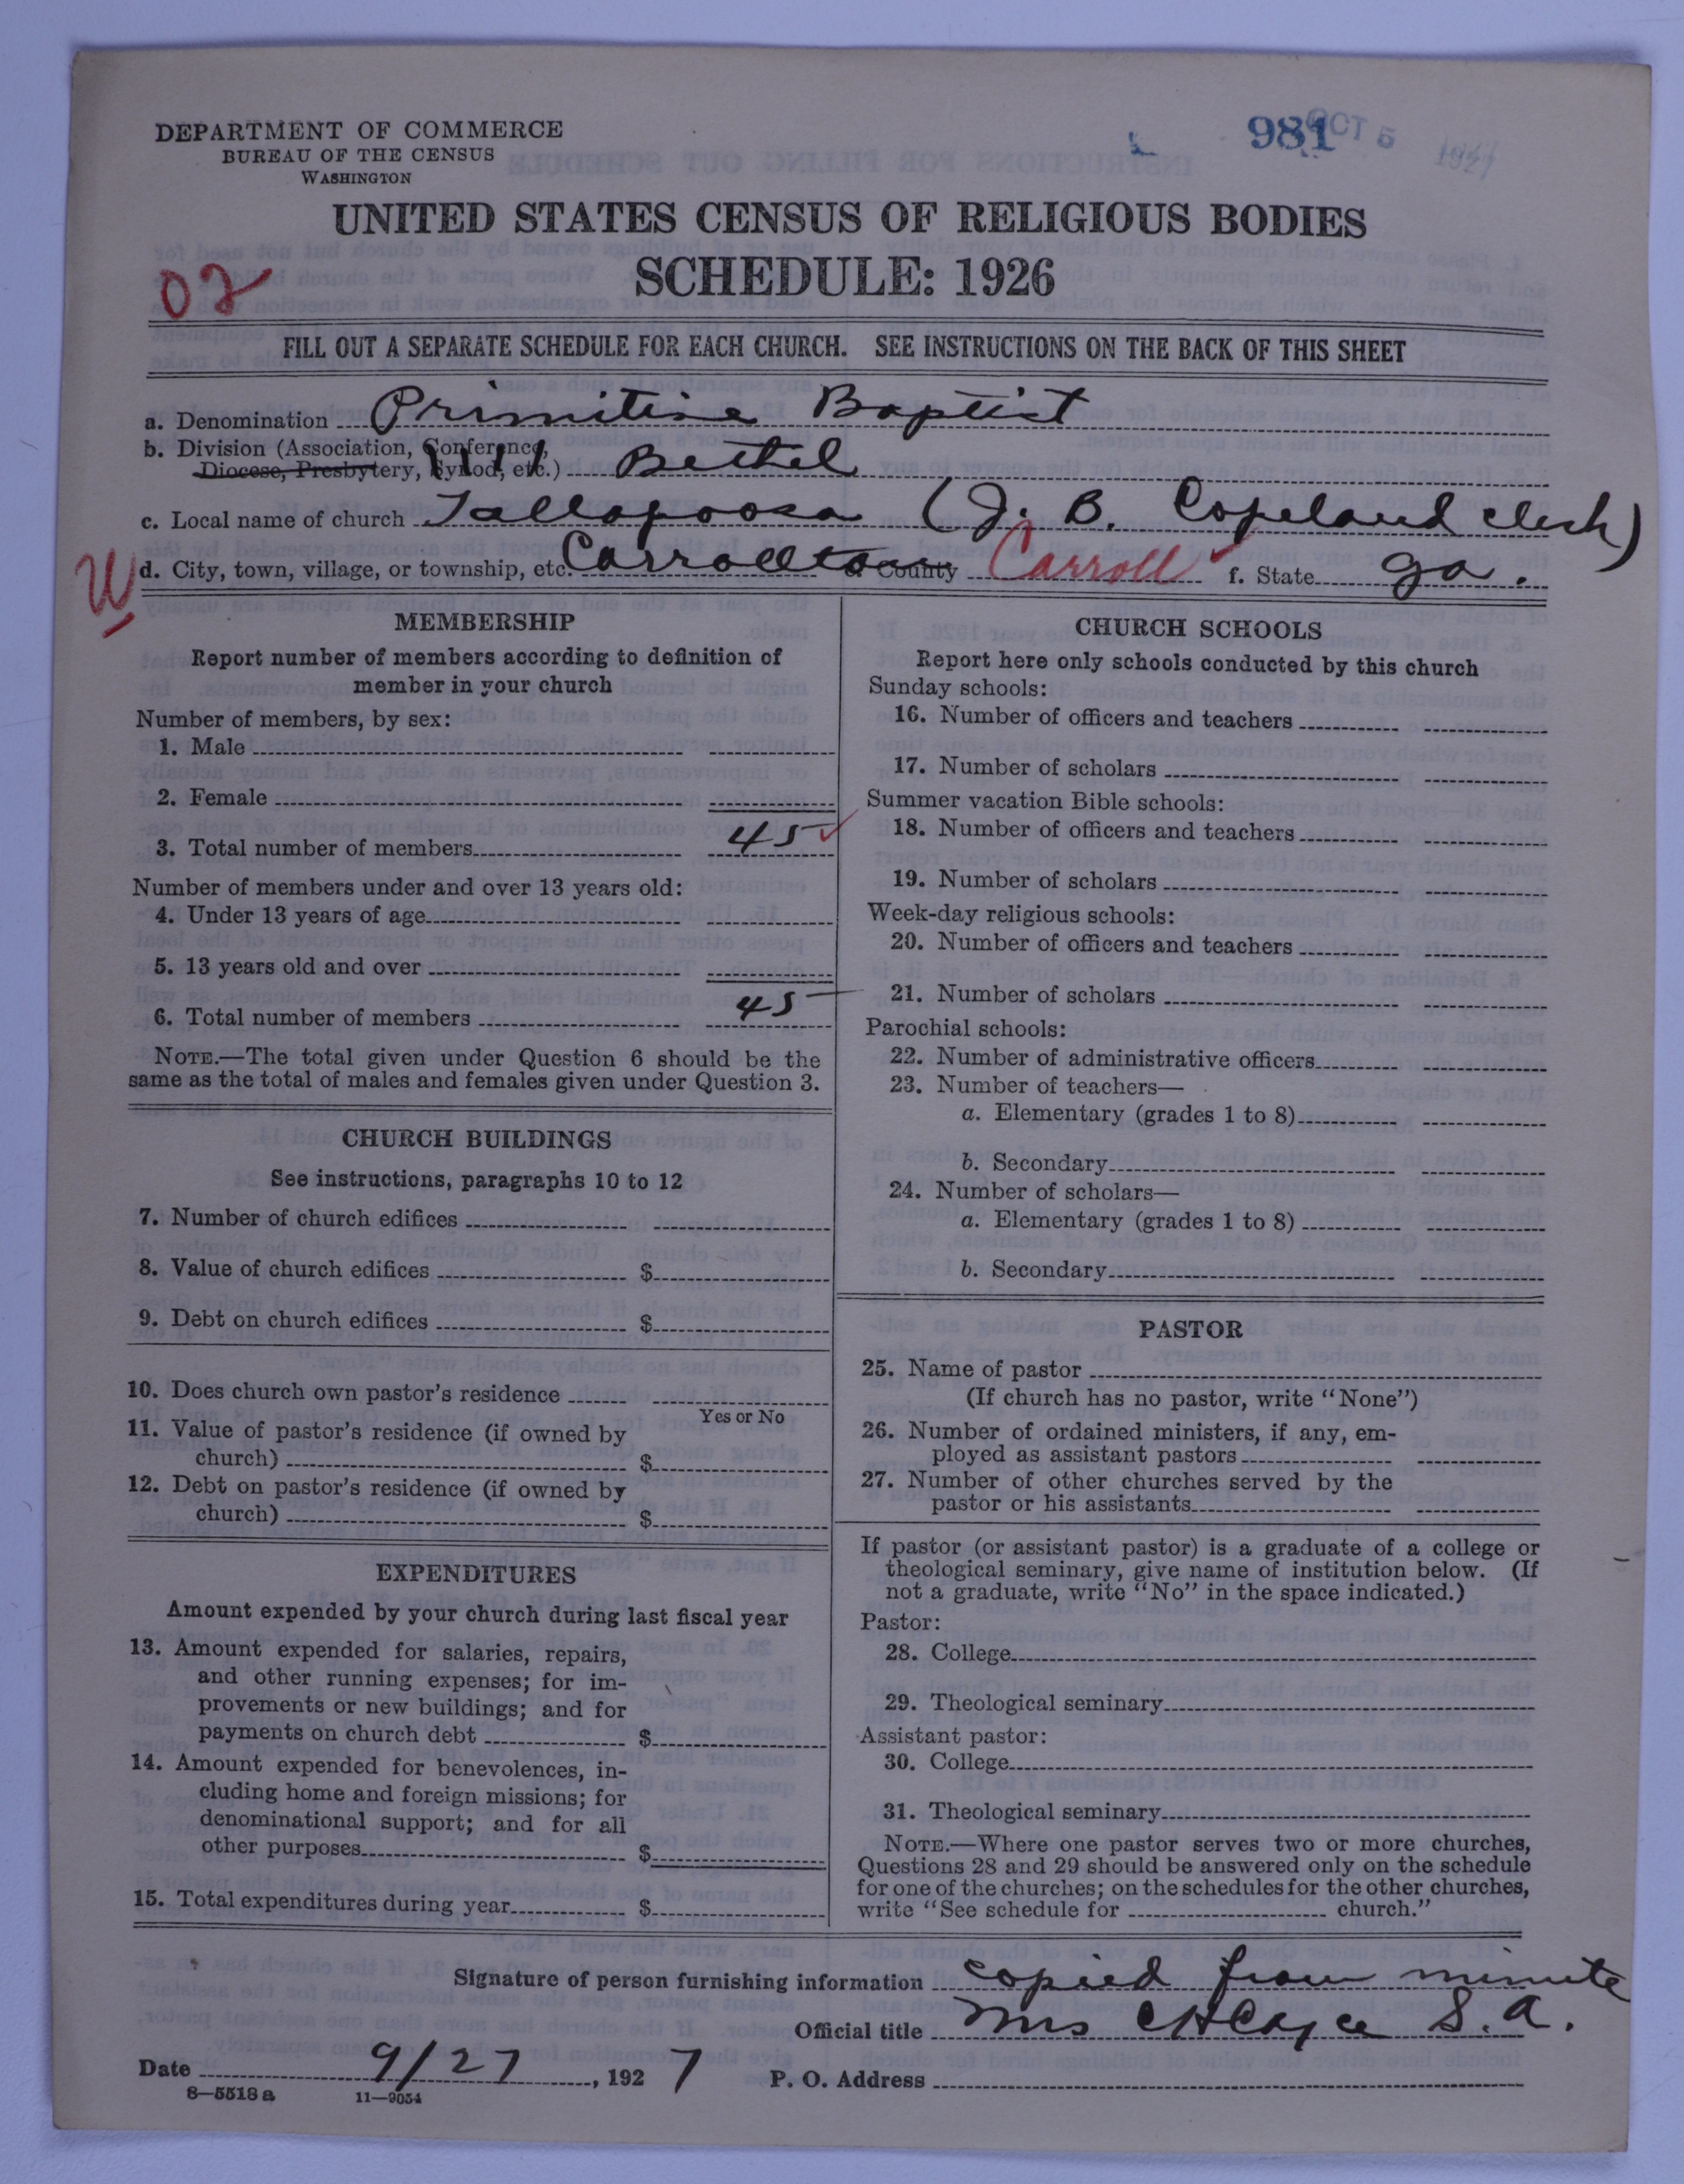 DEPARTMENT OF COMMERCE
BUREAU OF THE CENSUS
WASHINGTON
981
OCT 5 1927
UNITED STATES CENSUS OF RELIGIOUS BODIES
SCHEDULE: 1926
02
FILL OUT A SEPARATE SCHEDULE FOR EACH CHURCH. SEE INSTRUCTIONS ON THE BACK OF THIS SHEET
a. Denomination Primitive Baptist
b. Division (Association, Conference,
Diocese, Presbytery, Synod, etc.) Bethel
c. Local name of church Tallapoosa (J. B. Copeland clerk)
W
d. City, town, village, or township, etc. Carrollton e. County Carroll f. State Ga.
MEMBERSHIP
Report number of members according to definition of
member in your church
Number of members, by sex:
1. Male
2. Female
3. Total number of members 45
Number of members under and over 13 years old:
4. Under 13 years of age
5. 13 years old and over
6. Total number of members 45
NOTE.—The total given under Question 6 should be the
same as the total of males and females given under Question 3.
CHURCH BUILDINGS
See instructions, paragraphs 10 to 12
7. Number of church edifices
8. Value of church edifices $
9. Debt on church edifices $
10. Does church own pastor's residence
Yes or No
11. Value of pastor's residence (if owned by
church) $
12. Debt on pastor's residence (if owned by
church) $
EXPENDITURES
Amount expended by your church during last fiscal year
13. Amount expended for salaries, repairs,
and other running expenses; for im-
provements or new buildings; and for
payments on church debt $
14. Amount expended for benevolences, in-
cluding home and foreign missions; for
denominational support; and for all
other purposes $
15. Total expenditures during year $
CHURCH SCHOOLS
Report here only schools conducted by this church
Sunday schools:
16. Number of officers and teachers
17. Number of scholars
Summer vacation Bible schools:
18. Number of officers and teachers
19. Number of scholars
Week-day religious schools:
20. Number of officers and teachers
21. Number of scholars
Parochial schools:
22. Number of administrative officers
23. Number of teachers—
a. Elementary (grades 1 to 8)
b. Secondary
24. Number of scholars—
a. Elementary (grades 1 to 8)
b. Secondary
PASTOR
25. Name of pastor
(If church has no pastor, write "None")
26. Number of ordained ministers, if any, em-
ployed as assistant pastors
27. Number of other churches served by the
pastor or his assistants
If pastor (or assistant pastor) is a graduate of a college or
theological seminary, give name of institution below. (If
not a graduate, write "No" in the space indicated.)
Pastor:
28. College
29. Theological seminary
Assistant pastor:
30. College
31. Theological seminary
NOTE.—Where one pastor serves two or more churches,
Questions 28 and 29 should be answered only on the schedule
for one of the churches; on the schedules for the other churches,
write "See schedule for church."
Signature of person furnishing information copied from minute
Official title Mrs S. A.
Date 9/27, 1927 P. O. Address
8—5518 a 11—9054